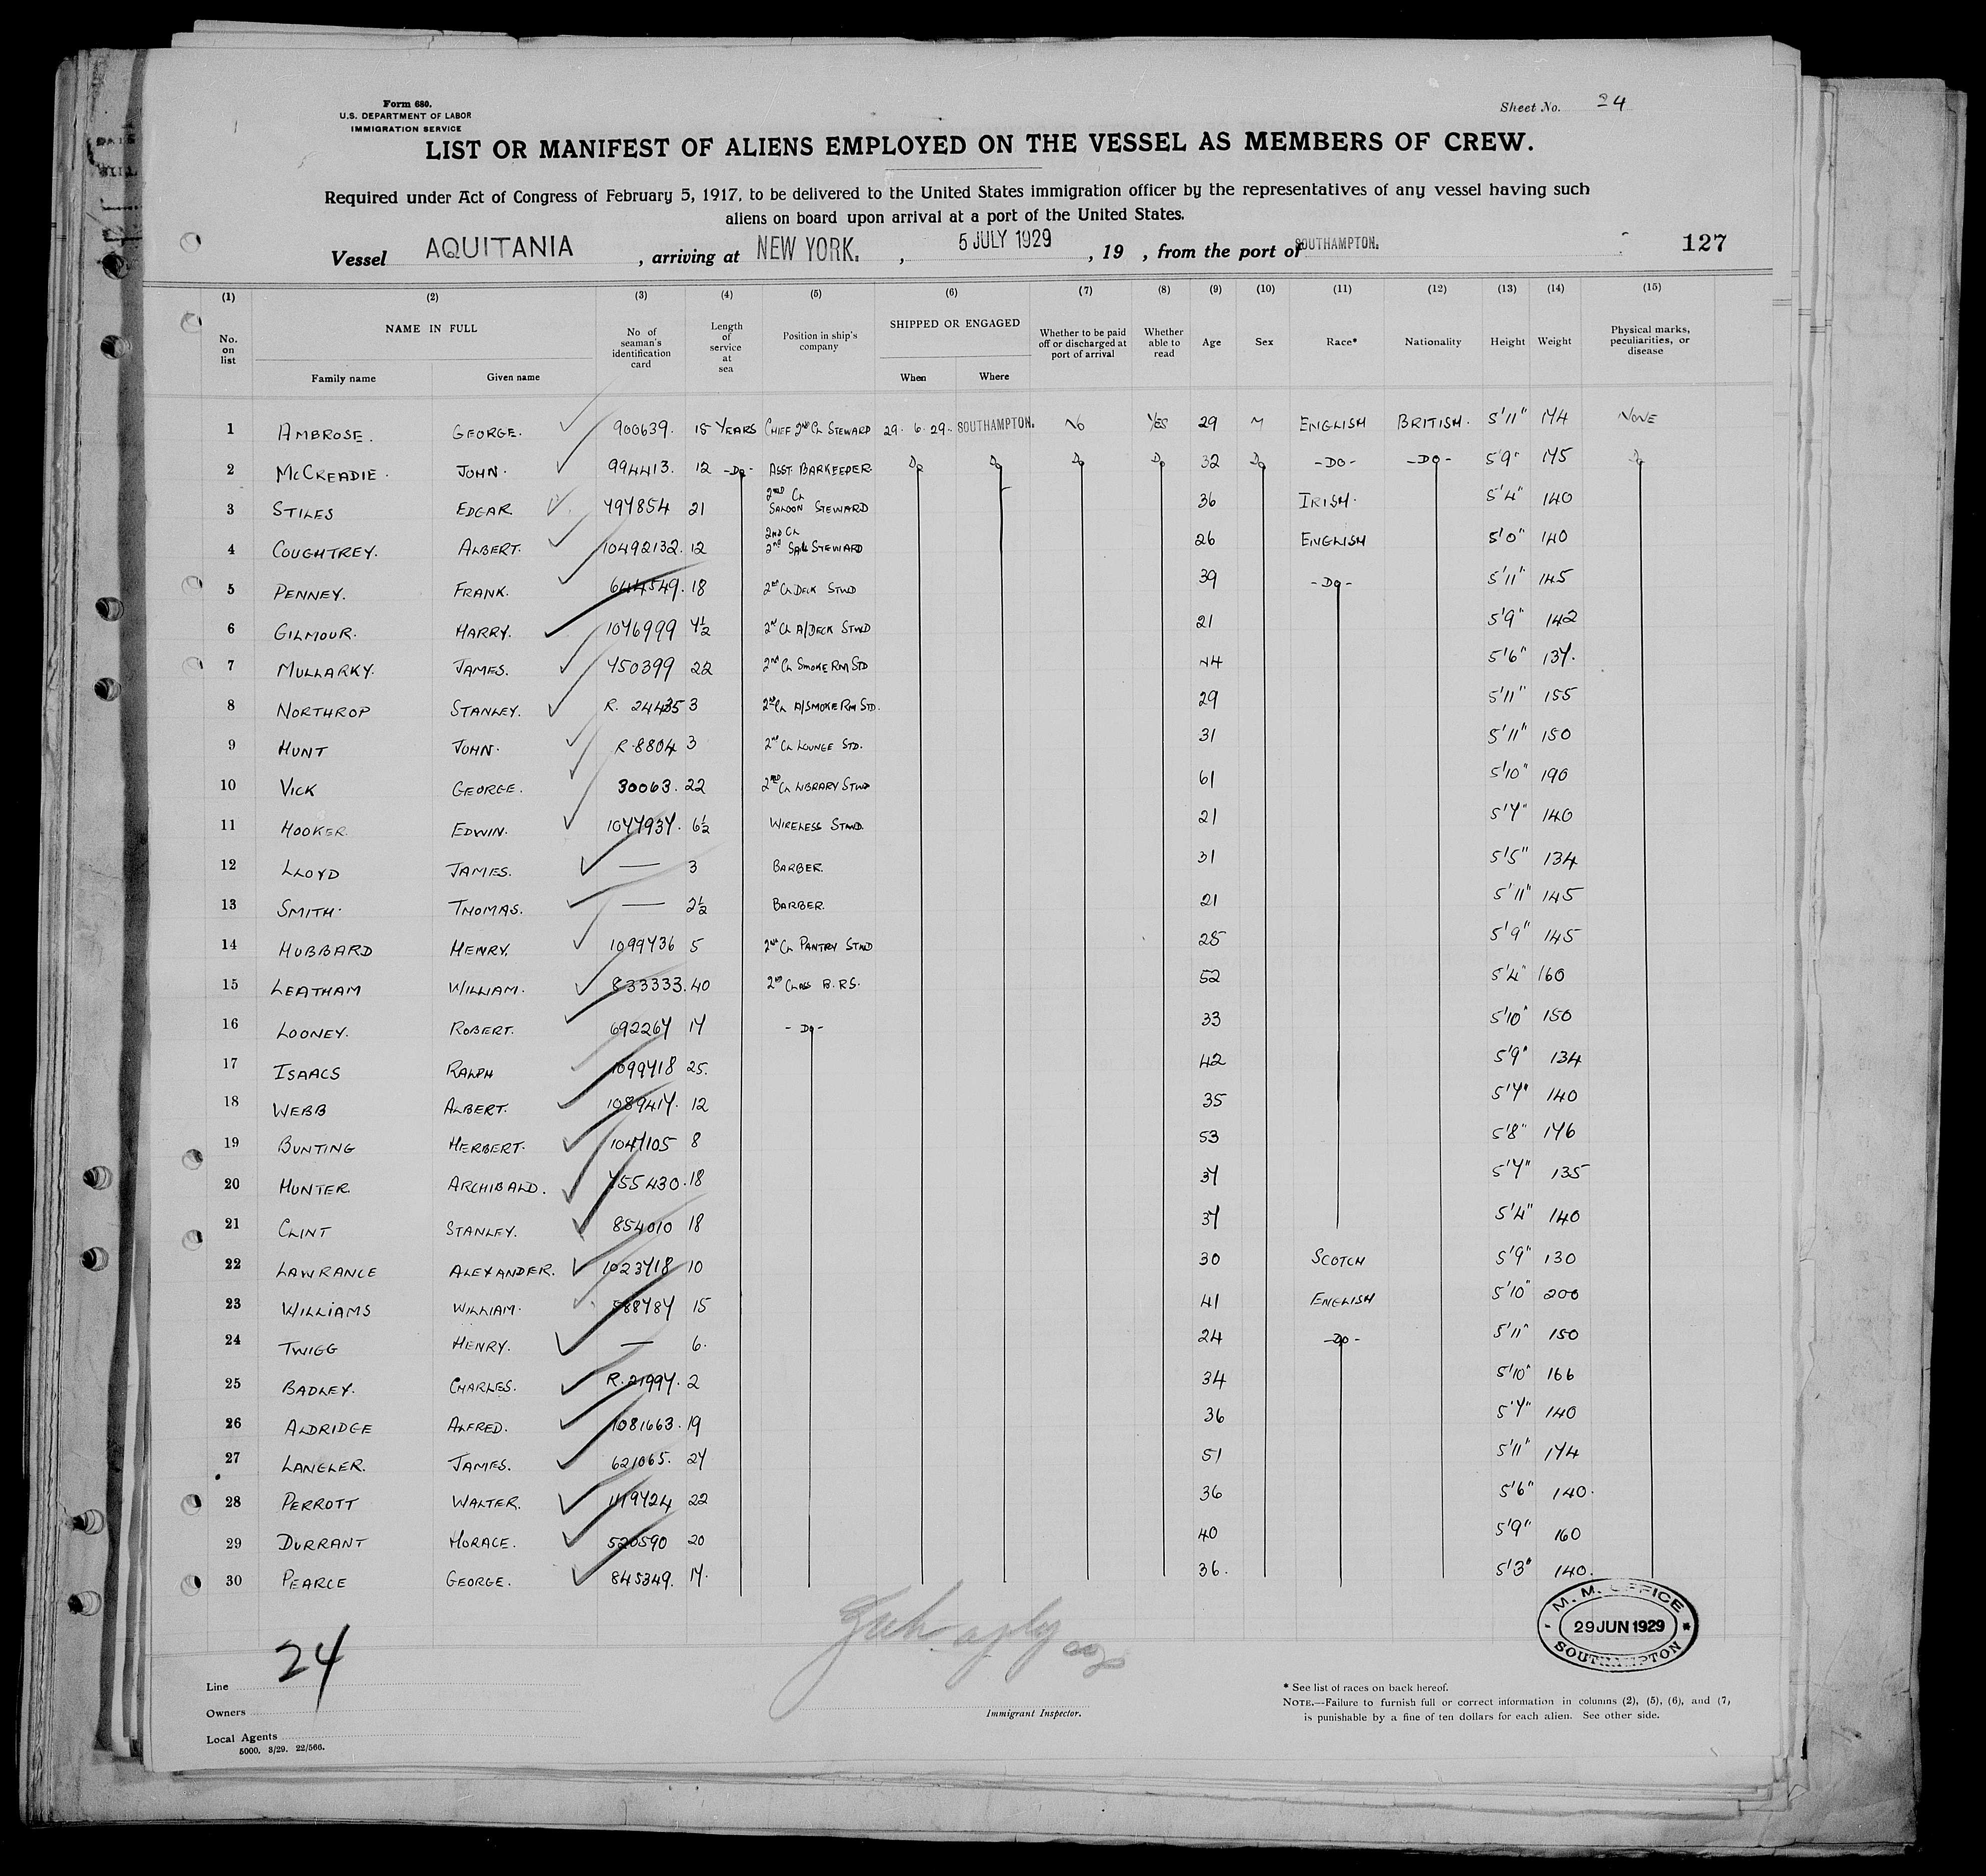 Form 680.
U.S. DEPARTMENT OF LABOR
IMMIGRATION SERVICE
Sheet No. 24
LIST OR MANIFEST OF ALIENS EMPLOYED ON THE VESSEL AS MEMBERS OF CREW.
Required under Act of Congress of February 5, 1917, to be delivered to the United States immigration officer by the representatives of any vessel having such
aliens on board upon arrival at a port of the United States.
Vessel AQUITANIA , arriving at NEW YORK. , 5 JULY 1929 , 19 , from the port of SOUTHAMPTON. 127
(1) (2) (3) (4) (5) (6) (7) (8) (9) (10) (11) (12) (13) (14) (15)
No. on list NAME IN FULL Family name Given name No of seaman's identification card Length of service at sea Position in ship's company SHIPPED OR ENGAGED When Where Whether to be paid off or discharged at port of arrival Whether able to read Age Sex Race* Nationality Height Weight Physical marks, peculiarities, or disease
1 AMBROSE. GEORGE. 900639. 15 YEARS CHIEF 2ND CL STEWARD 29. 6. 29. SOUTHAMPTON. NO YES 29 M ENGLISH BRITISH. 5'11" 174 NONE
2 McCREADIE. JOHN. 994413. 12 -DO- ASST. BARKEEPER. DO DO DO DO 32 DO -DO- -DO- 5'9" 175 DO
3 STILES EDGAR. 797854 21 2ND CL SALOON STEWARD 36 IRISH. 5'4" 140
4 COUGHTREY. ALBERT. 10492132. 12 2ND CL 2ND SAL STEWARD 26 ENGLISH 5'0" 140
5 PENNEY. FRANK. 644549. 18 2ND CL DECK STWD 39 -DO- 5'11" 145
6 GILMOUR. HARRY. 1076999 7½ 2ND CL A/DECK STWD 21 5'9" 142
7 MULLARKY. JAMES. 750399 22 2ND CL SMOKE RM STD 44 5'6" 137.
8 NORTHROP STANLEY. R. 24435 3 2ND CL A/SMOKE RM STD. 29 5'11" 155
9 HUNT JOHN. R.8804 3 2ND CL LOUNGE STD. 31 5'11" 150
10 VICK GEORGE. 30063. 22 2ND CL LIBRARY STWD 61 5'10" 190
11 HOOKER EDWIN. 1077937. 6½ WIRELESS STWD. 21 5'7" 140
12 LLOYD JAMES. — 3 BARBER. 31 5'5" 134
13 SMITH. THOMAS. — 2½ BARBER. 21 5'11" 145
14 HUBBARD HENRY. 1099736 5 2ND CL PANTRY STWD 25 5'9" 145
15 LEATHAM WILLIAM. 833333. 40 2ND CLASS B.R.S. 52 5'4" 160
16 LOONEY. ROBERT. 692267 17 -DO- 33 5'10" 150
17 ISAACS RALPH 1099718 25. 42 5'9" 134
18 WEBB ALBERT. 1089417. 12 35 5'7" 140
19 BUNTING HERBERT. 1047105 8 53 5'8" 176
20 HUNTER. ARCHIBALD. 755430. 18 37 5'7" 135
21 CLINT STANLEY. 854010 18 37 5'4" 140
22 LAWRANCE ALEXANDER. 1023718 10 30 SCOTCH 5'9" 130
23 WILLIAMS WILLIAM. 588787 15 41 ENGLISH 5'10" 200
24 TWIGG HENRY. — 6. 24 -DO- 5'11" 150
25 BADLEY. CHARLES. R.21997. 2 34 5'10" 166
26 ALDRIDGE ALFRED. 1081663. 19 36 5'7" 140
27 LANGLER. JAMES. 621065. 27 51 5'11" 174
28 PERROTT WALTER. 1119724 22 36 5'6" 140.
29 DURRANT HORACE. 520590 20 40 5'9" 160
30 PEARCE GEORGE. 845349. 17. 36. 5'3" 140.
24
M. M. OFFICE
29 JUN 1929
SOUTHAMPTON
Line
Owners
Local Agents
5000. 3/29. 22/566.
Immigrant Inspector.
* See list of races on back hereof.
NOTE.—Failure to furnish full or correct information in columns (2), (5), (6), and (7,
is punishable by a fine of ten dollars for each alien. See other side.